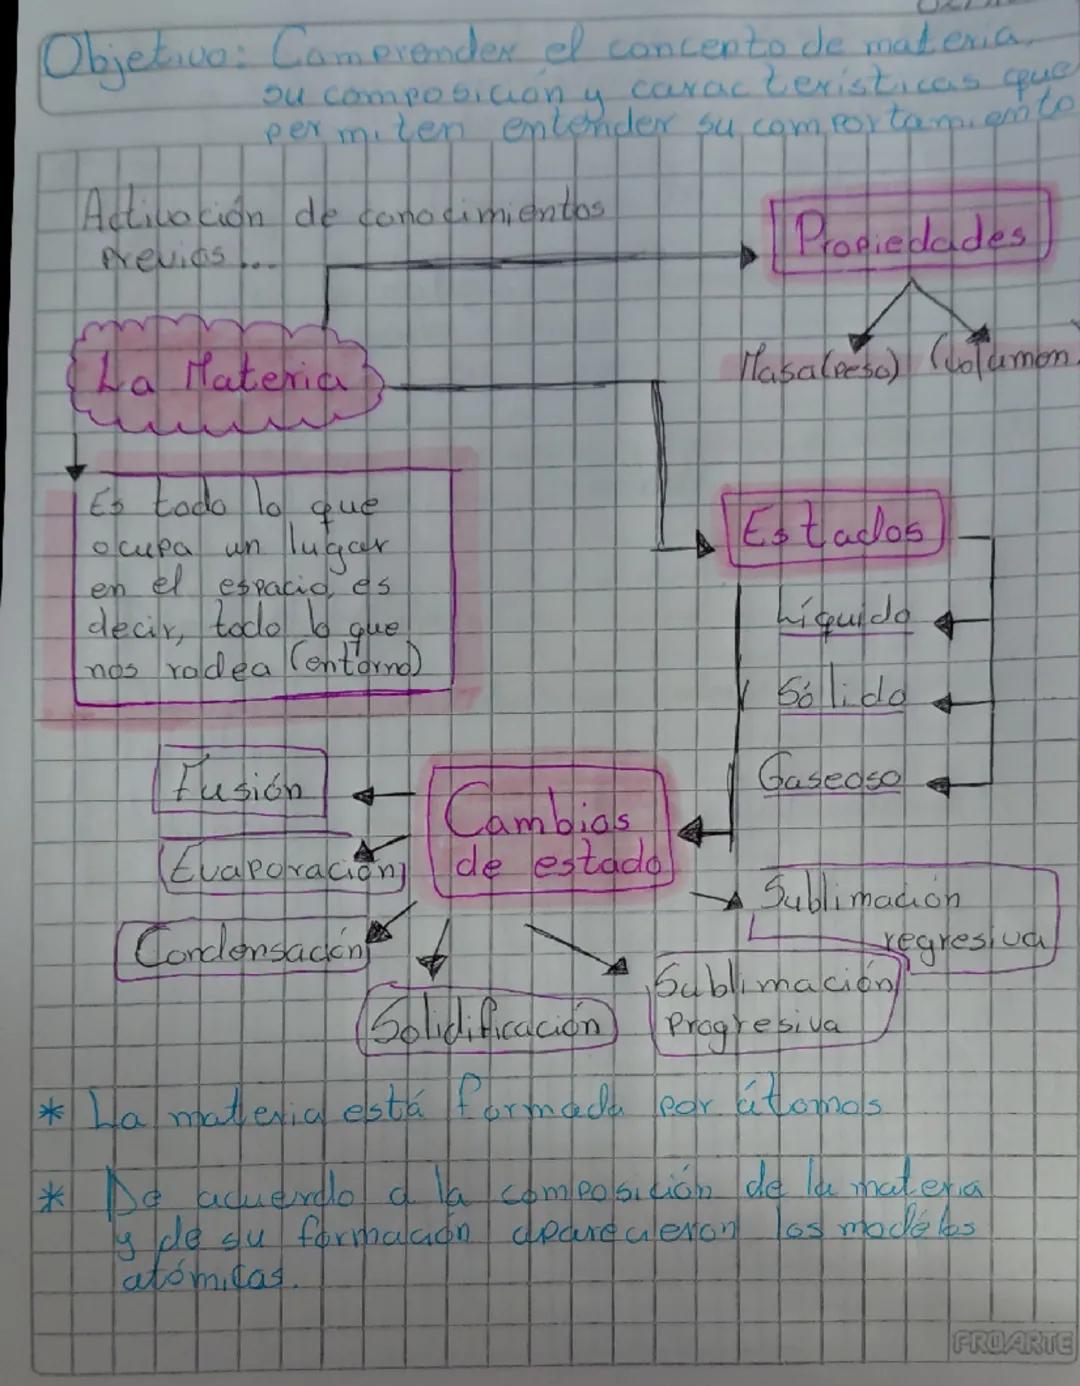 Objetivo: Comprender el concepto de materia,
su composición y características que
permiten entender su comportamiento
Activación de conocimientos
previos...
Propiedades
La Materia
Masa (peso) (Volumen
Es todo lo que
ocupa un lugar
en el espacio, es
decir, todo lo que
nos rodea (entorno)
Estados
Líquido
Sólido
Gaseoso
Fusión
Cambios
de estado
Evaporación
Sublimación
regresiva
Condensación
Sublimación
Progresiva
Solidificación
* La materia está formada por átomos
* De acuerdo a la composición de la materia
y de su formación aparecieron los modelos
atómicos.
PROARTE